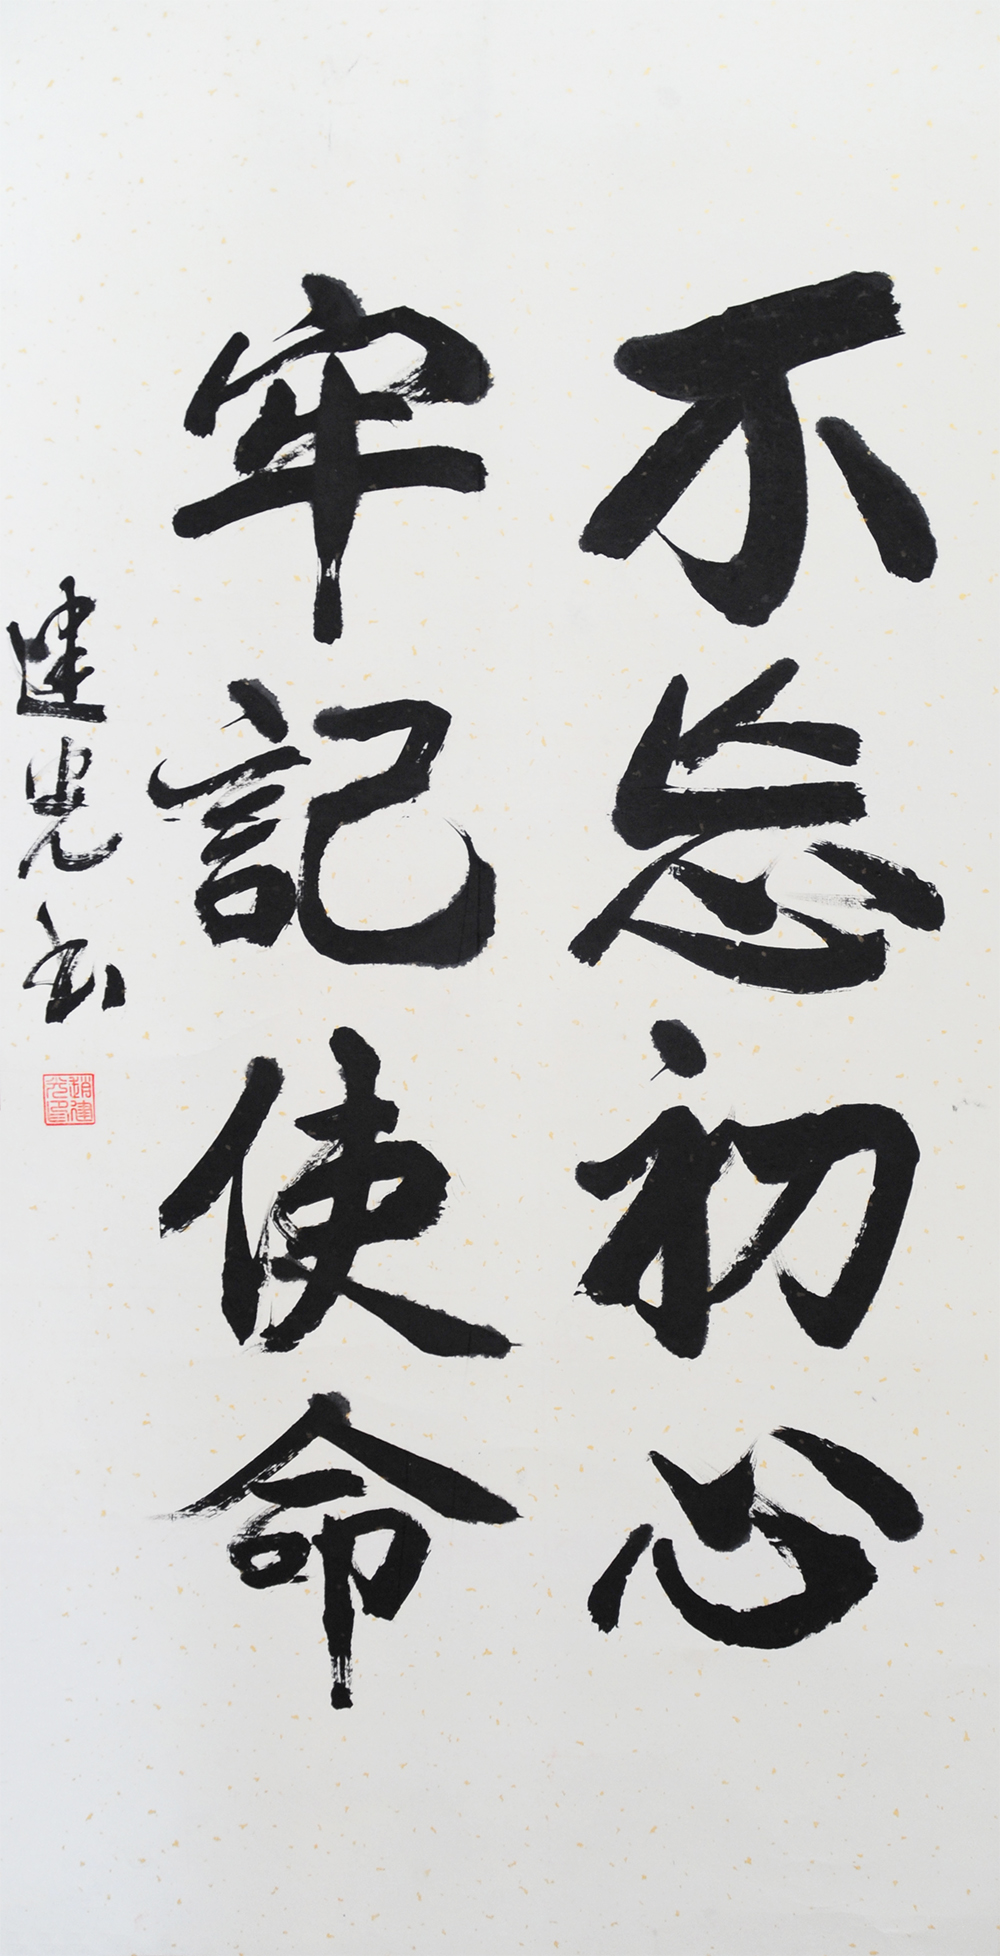 不忘初心
牢記使命
建光书
趙建光印